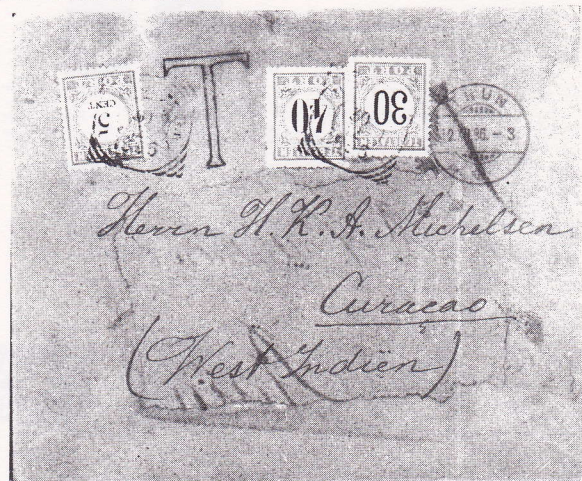 5 CENT
T
30
Herrn H. K. A. Michelsen
Curaçao
(West Indiën)